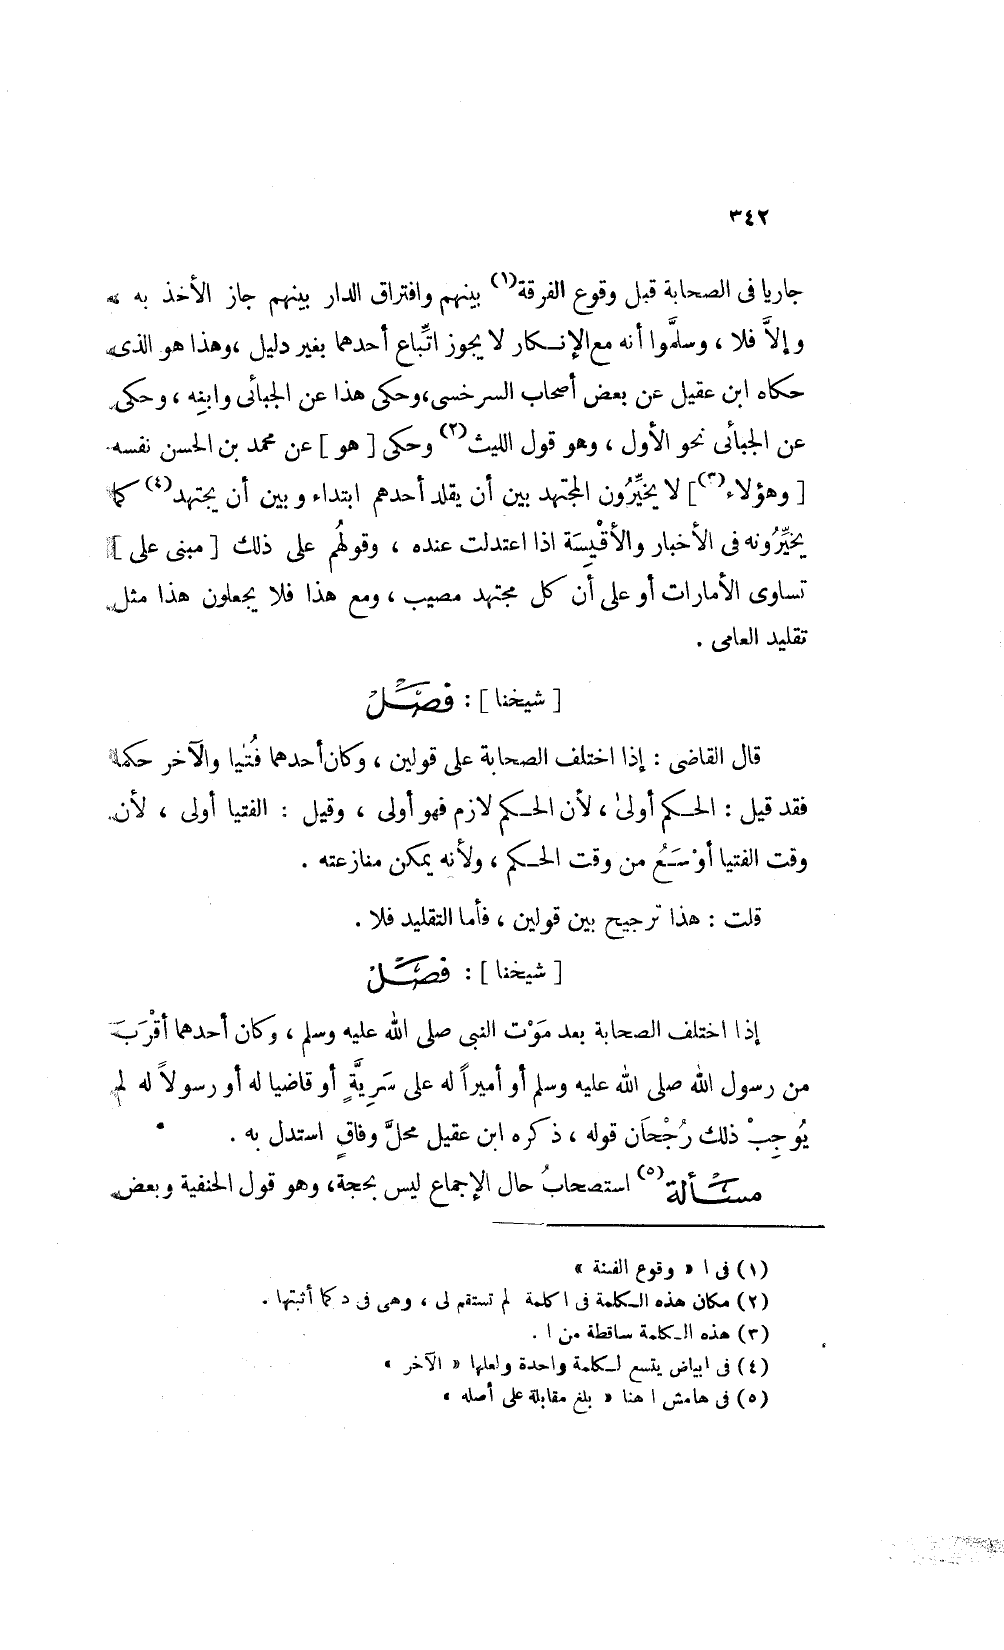 ٣٤٢
جاريا فى الصحابة قبل وقوع الفرقة(١) بينهم وافتراق الدار بينهم جاز الأخذ به
وإلاَّ فلا ، وسلَّموا أنه مع الإنكار لا يجوز اتِّباع أحدهما بغير دليل ، وهذا هو الذى
حكاه ابن عقيل عن بعض أصحاب السرخسى، وحكى هذا عن الجبائى وابنِه ، وحكى
عن الجبائى نحو الأول ، وهو قول الليث(٢) وحكى [ هو ] عن محمد بن الحسن نفسه
[ وهؤلاء(٣)] لا يخيِّرُون المجتهد بين أن يقلد أحدهم ابتداء وبين أن يجتهد(٤) كما
يخيِّرُونه فى الأخبار والأقْيِسَة اذا اعتدلت عنده ، وقولهُم على ذلك [ مبنى على ]
تساوى الأمارات أو على أن كل مجتهد مصيب ، ومع هذا فلا يجعلون هذا مثل
تقليد العامى .
[ شيخنا ] : فَصَـْـلٌ
قال القاضى : إذا اختلف الصحابة على قولين ، وكان أحدهما فُتْيا والآخر حكما
فقد قيل : الحكم أولىٰ ، لأن الحكم لازم فهو أولى ، وقيل : الفتيا أولى ، لأن
وقت الفتيا أوْسَعُ من وقت الحكم ، ولأنه يمكن منازعته .
قلت : هذا ترجيح بين قولين ، فأما التقليد فلا .
[ شيخنا ] : فَصَـْـلٌ
إذا اختلف الصحابة بعد مَوْت النبى صلى الله عليه وسلم ، وكان أحدهما أقْرَبَ
من رسول الله صلى الله عليه وسلم أو أميراً له على سَرِيَّةٍ أو قاضيا له أو رسولاً له لم
يُوجِبْ ذلك رُجْحَان قوله ، ذكره ابن عقيل محلَّ وفاقٍ استدل به .
مســألة(٥) استصحابُ حال الإجماع ليس بحجة، وهو قول الحنفية وبعض
(١) فى ا « وقوع الفتنة »
(٢) مكان هذه الكلمة فى ا كلمة لم تستقم لى ، وهى فى د كما أثبتها .
(٣) هذه الكلمة ساقطة من ا .
(٤) فى ا بياض يتسع لكلمة واحدة ولعلها « الآخر »
(٥) فى هامش ا هنا « بلغ مقابلة على أصله »